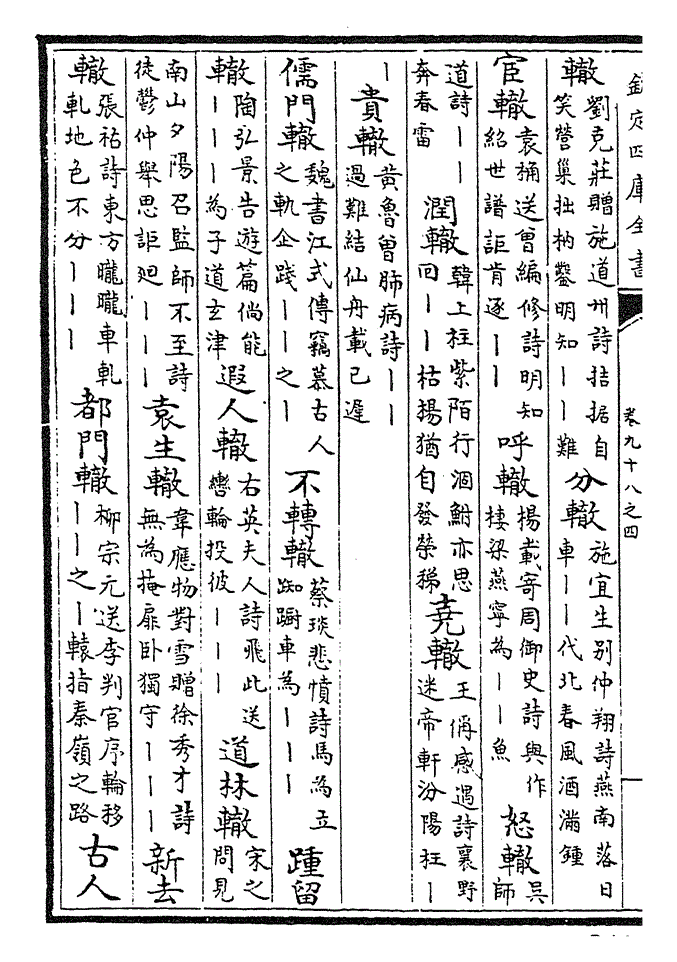 欽定四庫全書 卷九十八之四
轍 劉克莊贈施道州詩拮据自笑營巢拙枘鑿明知丨丨難 分轍 施宜生别仲翔詩燕南落日車丨丨代北春風酒滿鍾
宦轍 袁桷送曾編修詩明知紹世譜詎肯逐丨丨 呼轍 楊載寄周御史詩與作棲梁燕寧為丨丨魚 怒轍 吳師
道詩丨丨奔春雷 潤轍 韓上桂紫陌行涸鮒亦思回丨丨枯楊猶自發榮稊 堯轍 王偁感遇詩襄野迷帝軒汾陽枉丨
丨 貴轍 黃魯曾肺病詩丨丨過難結仙舟載已遲
儒門轍 魏書江式傳竊慕古人之軌企踐丨丨之丨 不轉轍 蔡琰悲憤詩馬為立踟躕車為丨丨丨 踵留
轍 陶弘景告遊篇倘能丨丨丨為子道玄津 遐人轍 右英夫人詩飛此送轡輪投彼丨丨丨 道林轍 宋之問見
南山夕陽召監師不至詩徒鬱仲舉思詎廻丨丨丨 袁生轍 韋應物對雪贈徐秀才詩無為掩扉卧獨守丨丨丨 新去
轍 張祜詩東方曨曨車軋軋地色不分丨丨丨 都門轍 柳宗元送李判官序輪移丨丨之丨轅指秦嶺之路 古人